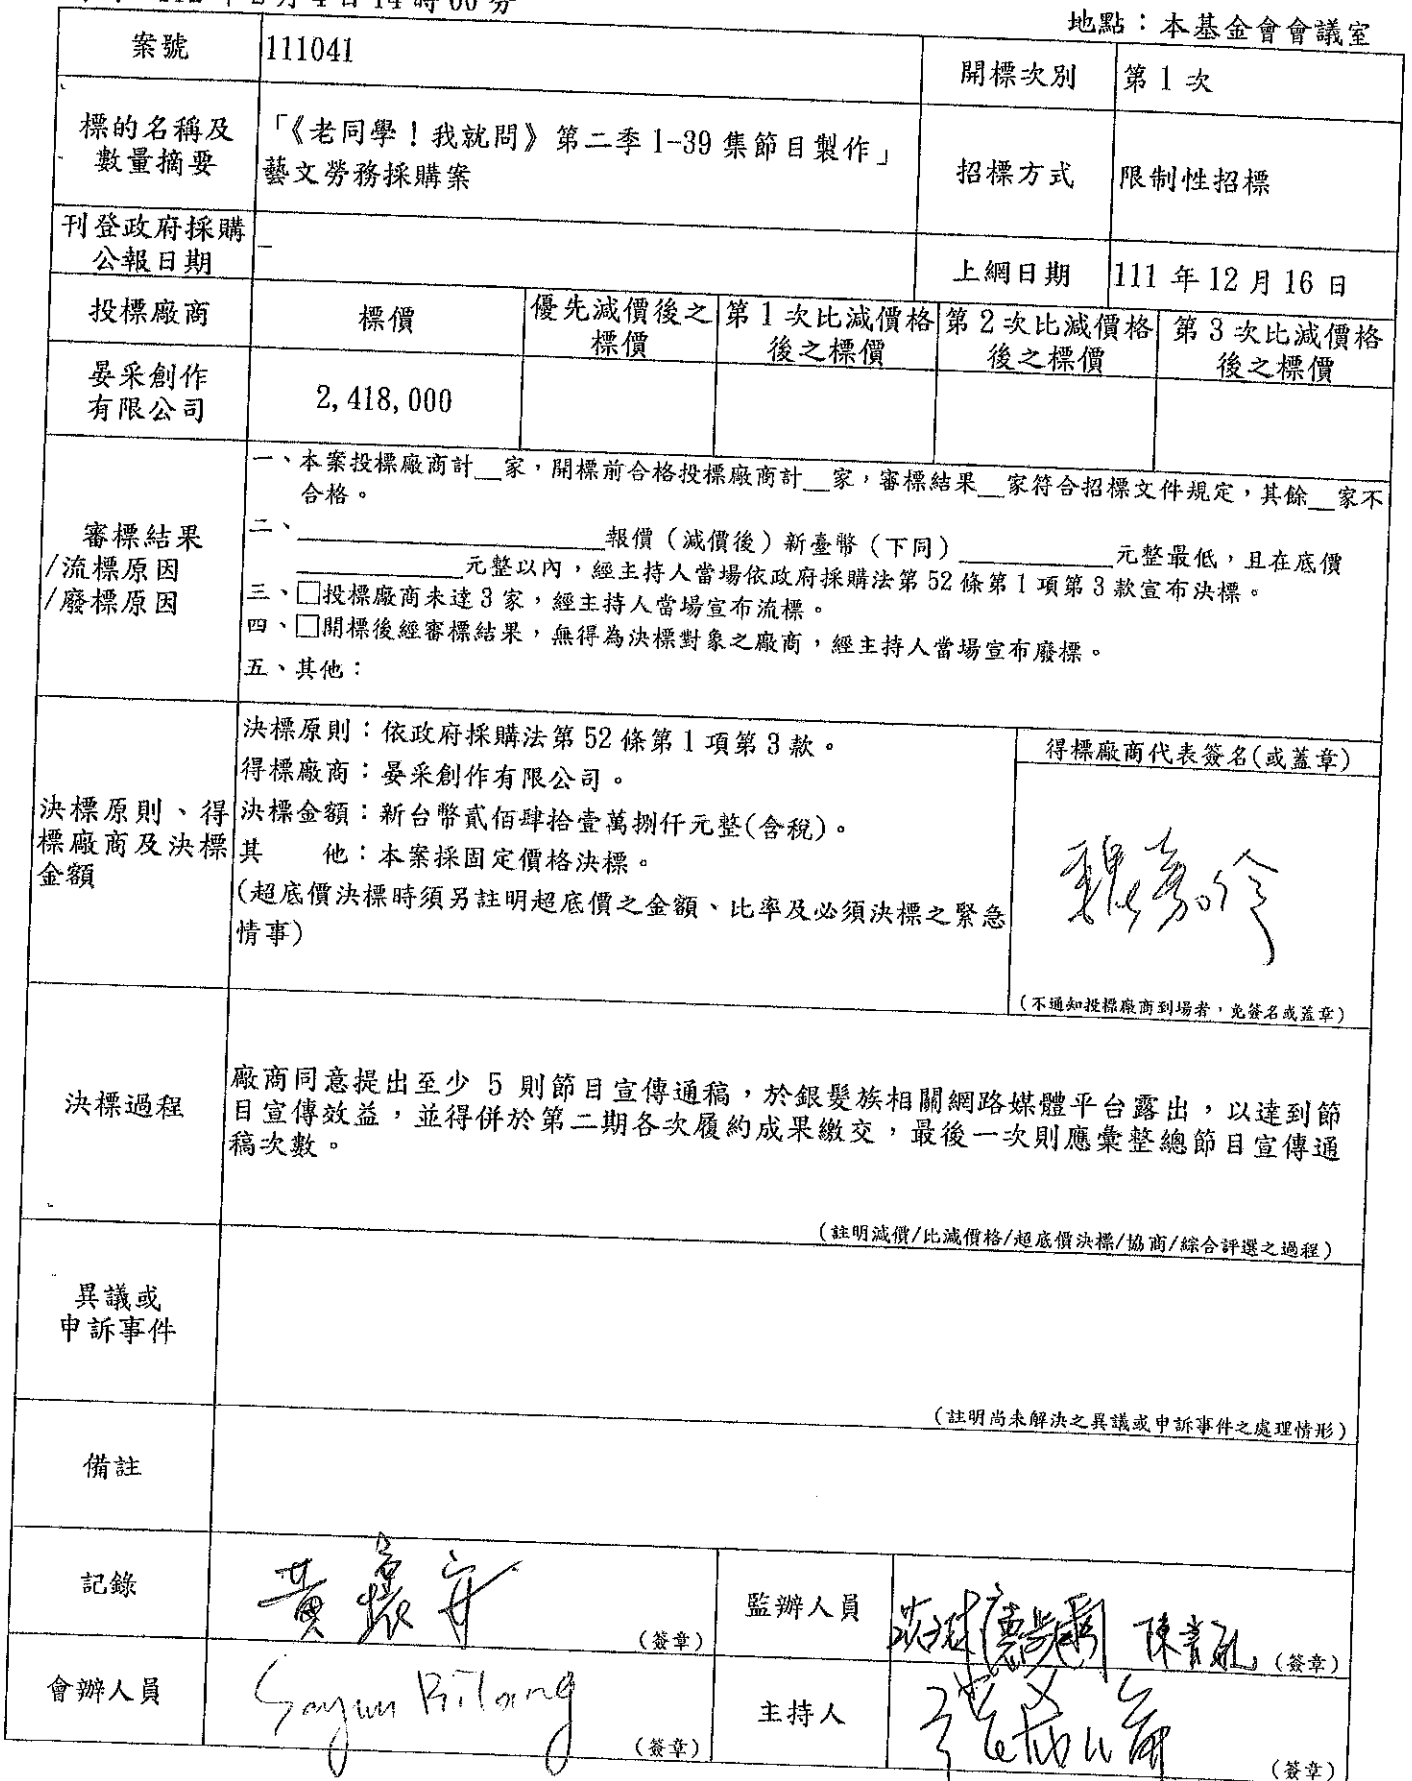 年2月4日14時00分
地點：本基金會會議室
案號
111041
開標次別
第 1 次
標的名稱及
數量摘要
「《老同學！我就問》第二季 1-39 集節目製作」
藝文勞務採購案
招標方式
限制性招標
刊登政府採購
公報日期
–
上網日期
111 年 12 月 16 日
投標廠商
標價
優先減價後之
標價
第 1 次比減價格
後之標價
第 2 次比減價格
後之標價
第 3 次比減價格
後之標價
晏采創作
有限公司
2,418,000
審標結果
/流標原因
/廢標原因
一、本案投標廠商計__家，開標前合格投標廠商計__家，審標結果__家符合招標文件規定，其餘__家不
合格。
二、____________________報價（減價後）新臺幣（下同）__________元整最低，且在底價
____________元整以內，經主持人當場依政府採購法第 52 條第 1 項第 3 款宣布決標。
三、□投標廠商未達 3 家，經主持人當場宣布流標。
四、□開標後經審標結果，無得為決標對象之廠商，經主持人當場宣布廢標。
五、其他：
決標原則、得
標廠商及決標
金額
決標原則：依政府採購法第 52 條第 1 項第 3 款。
得標廠商：晏采創作有限公司。
決標金額：新台幣貳佰肆拾壹萬捌仟元整(含稅)。
其　　他：本案採固定價格決標。
(超底價決標時須另註明超底價之金額、比率及必須決標之緊急
情事)
得標廠商代表簽名(或蓋章)
(不通知投標廠商到場者，免簽名或蓋章)
決標過程
廠商同意提出至少 5 則節目宣傳通稿，於銀髮族相關網路媒體平台露出，以達到節
目宣傳效益，並得併於第二期各次履約成果繳交，最後一次則應彙整總節目宣傳通
稿次數。
(註明減價/比減價格/超底價決標/協商/綜合評選之過程)
異議或
申訴事件
(註明尚未解決之異議或申訴事件之處理情形)
備註
記錄
(簽章)
監辦人員
(簽章)
會辦人員
(簽章)
主持人
(簽章)